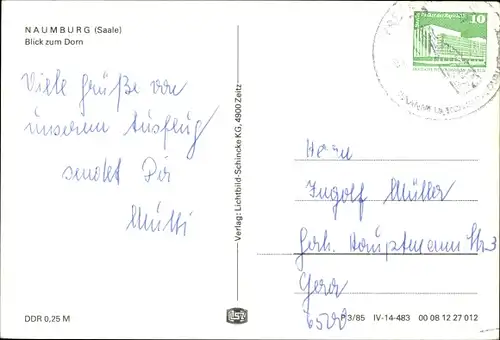 NAUMBURG (Saale)
Blick zum Dom
Viele Grüße von
unserem Ausflug
sendet Dir
Mutti
Verlag: Lichtbild-Schincke KG, 4900 Zeitz
10
Herrn
Ingolf Müller
Gerh. Hauptmann Str 3
Gera
6500
DDR 0,25 M
P 3/85 IV-14-483 00 08 12 27 012